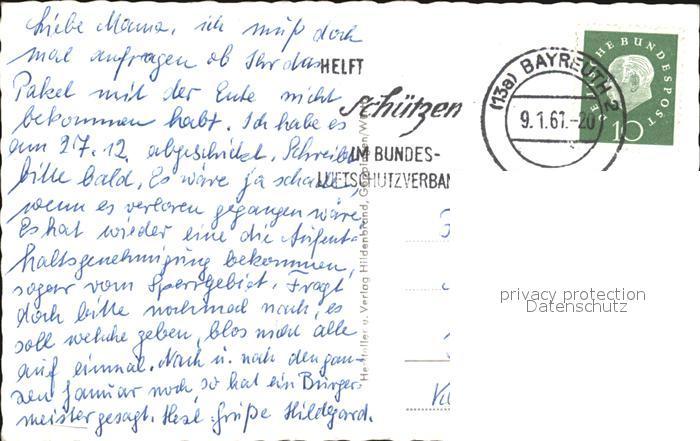 Liebe Mama, ich muß doch
mal anfragen ob Ihr das
Paket mit der Ente nicht
bekommen habt. Ich habe es
am 27.12. abgeschickt. Schreibt
bitte bald. Es wäre ja schade
wenn es verloren gegangen wäre.
Es hat wieder eine die Aufent-
haltsgenehmigung bekommen,
sogar vom Sperrgebiet. Fragt
doch bitte nochmal nach, es
soll welche geben, blos nicht alle
auf einmal. Nach u. nach den gan-
zen Januar noch so hat ein Bürger-
meister gesagt. Herzl. Grüße Hildegard.
HELFT
Schützen
IM BUNDES-
LUFTSCHUTZVERBAN
(13a) BAYREUTH 2
9.1.61.-20
DEUTSCHE BUNDESPOST
10
Hersteller u. Verlag Hildenbrand,
privacy protection
Datenschutz